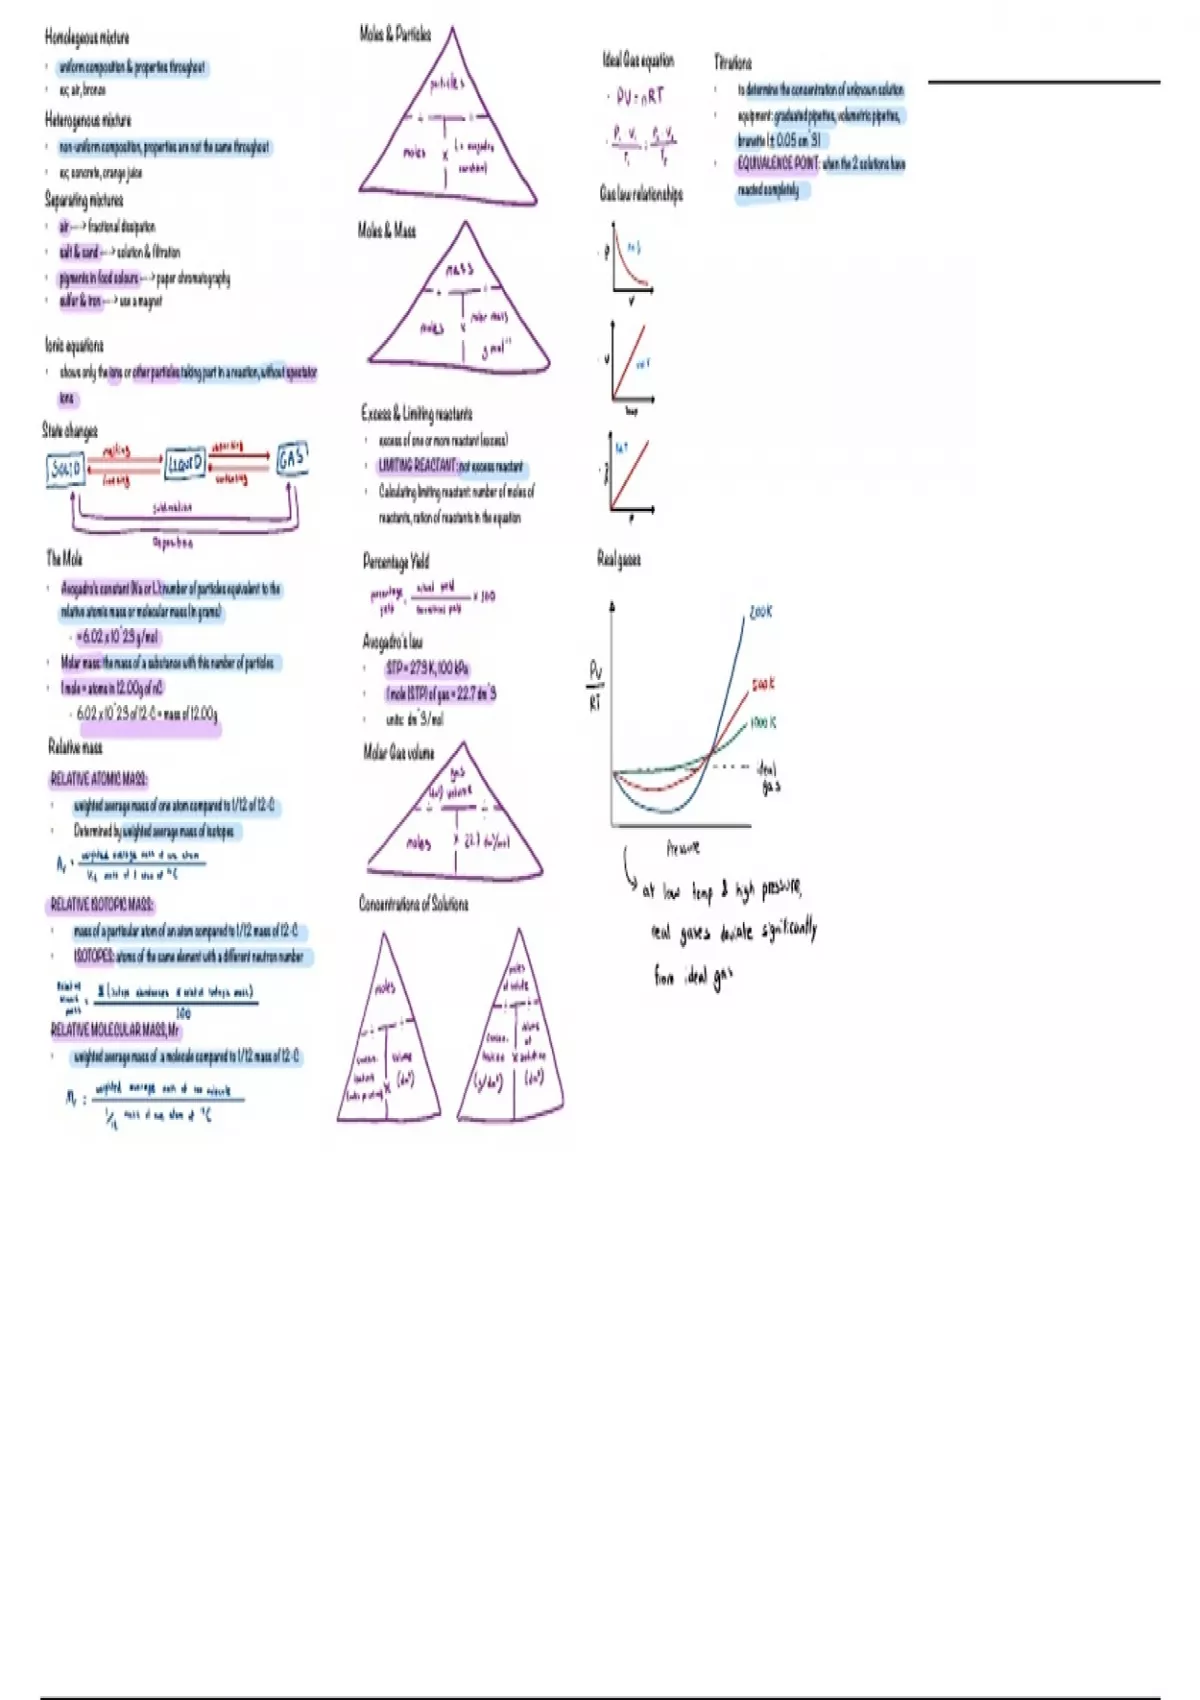 Homolegeous mixture
uniform composition & properties throughout
ex; air, bronze
Heterogenous mixture
non-uniform composition, properties are not the same throughout
ex; concrete, orange juice
Separating mixtures
air ---> fractional dissipation
salt & sand ---> solution & filtration
pigments in food colours ---> paper chromatography
sulfur & iron ---> use a magnet
Ionic equations
shows only the ions or other particles taking part in a reaction, without spectator
ions
State changes
melting
SOLID
LIQUID
GAS
freezing
sublimation
Deposition
The Mole
Avogadro's constant (Na or L): number of particles equivalent to the
relative atomic mass or molecular mass (in grams)
= 6.02 x 10^23 g/mol
Molar mass: the mass of a substance with this number of particles
1 mole = atoms in 12.00g of
6.02 x 10^23 of 12-C = mass of 12.00g
Relative mass
RELATIVE ATOMIC MASS:
weighted average mass of one atom compared to 1/12 of 12-C
Determined by weighted average mass of isotopes
Ar = weighted average mass of one atom
1/12 mass of 1 atom of ¹²C
RELATIVE ISOTOPIC MASS:
mass of a particular atom of an atom compared to 1/12 mass of 12-C
ISOTOPES: atoms of the same element with a different neutron number
100
RELATIVE MOLECULAR MASS, Mr
weighted average mass of a molecule compared to 1/12 mass of 12-C
Mr = weighted average mass of one molecule
1/12 mass of one atom of ¹²C
Moles & Particles
particles
moles
x
Moles & Mass
mass
moles
x
molar mass
g mol⁻¹
Excess & Limiting reactants
excess of one or more reactant (excess)
LIMITING REACTANT: not excess reactant
Calculating limiting reactant: number of moles of
reactants, ration of reactants in the equation
Percentage Yield
percentage yield = actual yield / theoretical yield x 100
Avogadro's law
STP = 273 K, 100 kPa
1 mole (STP) of gas = 22.7 dm^3
units: dm^3/mol
Molar Gas volume
gas
volume
moles
x
22.7 dm³/mol
Concentrations of Solutions
moles
volume
(dm³)
moles
of solute
(g/dm³)
(dm³)
Ideal Gas equation
PV = nRT
P₁ V₁ / T₁ = P₂ V₂ / T₂
Gas law relationships
P
V
V
temp
P
Real gases
PV
RT
200K
500K
1000K
ideal
gas
Pressure
at low temp & high pressure,
real gases deviate significantly
from ideal gas
Titrations
to determine the concentration of unknown solution
equipment: graduated pipettes, volumetric pipettes,
brunette (± 0.05 cm^3)
EQUIVALENCE POINT: when the 2 solutions have
reacted completely